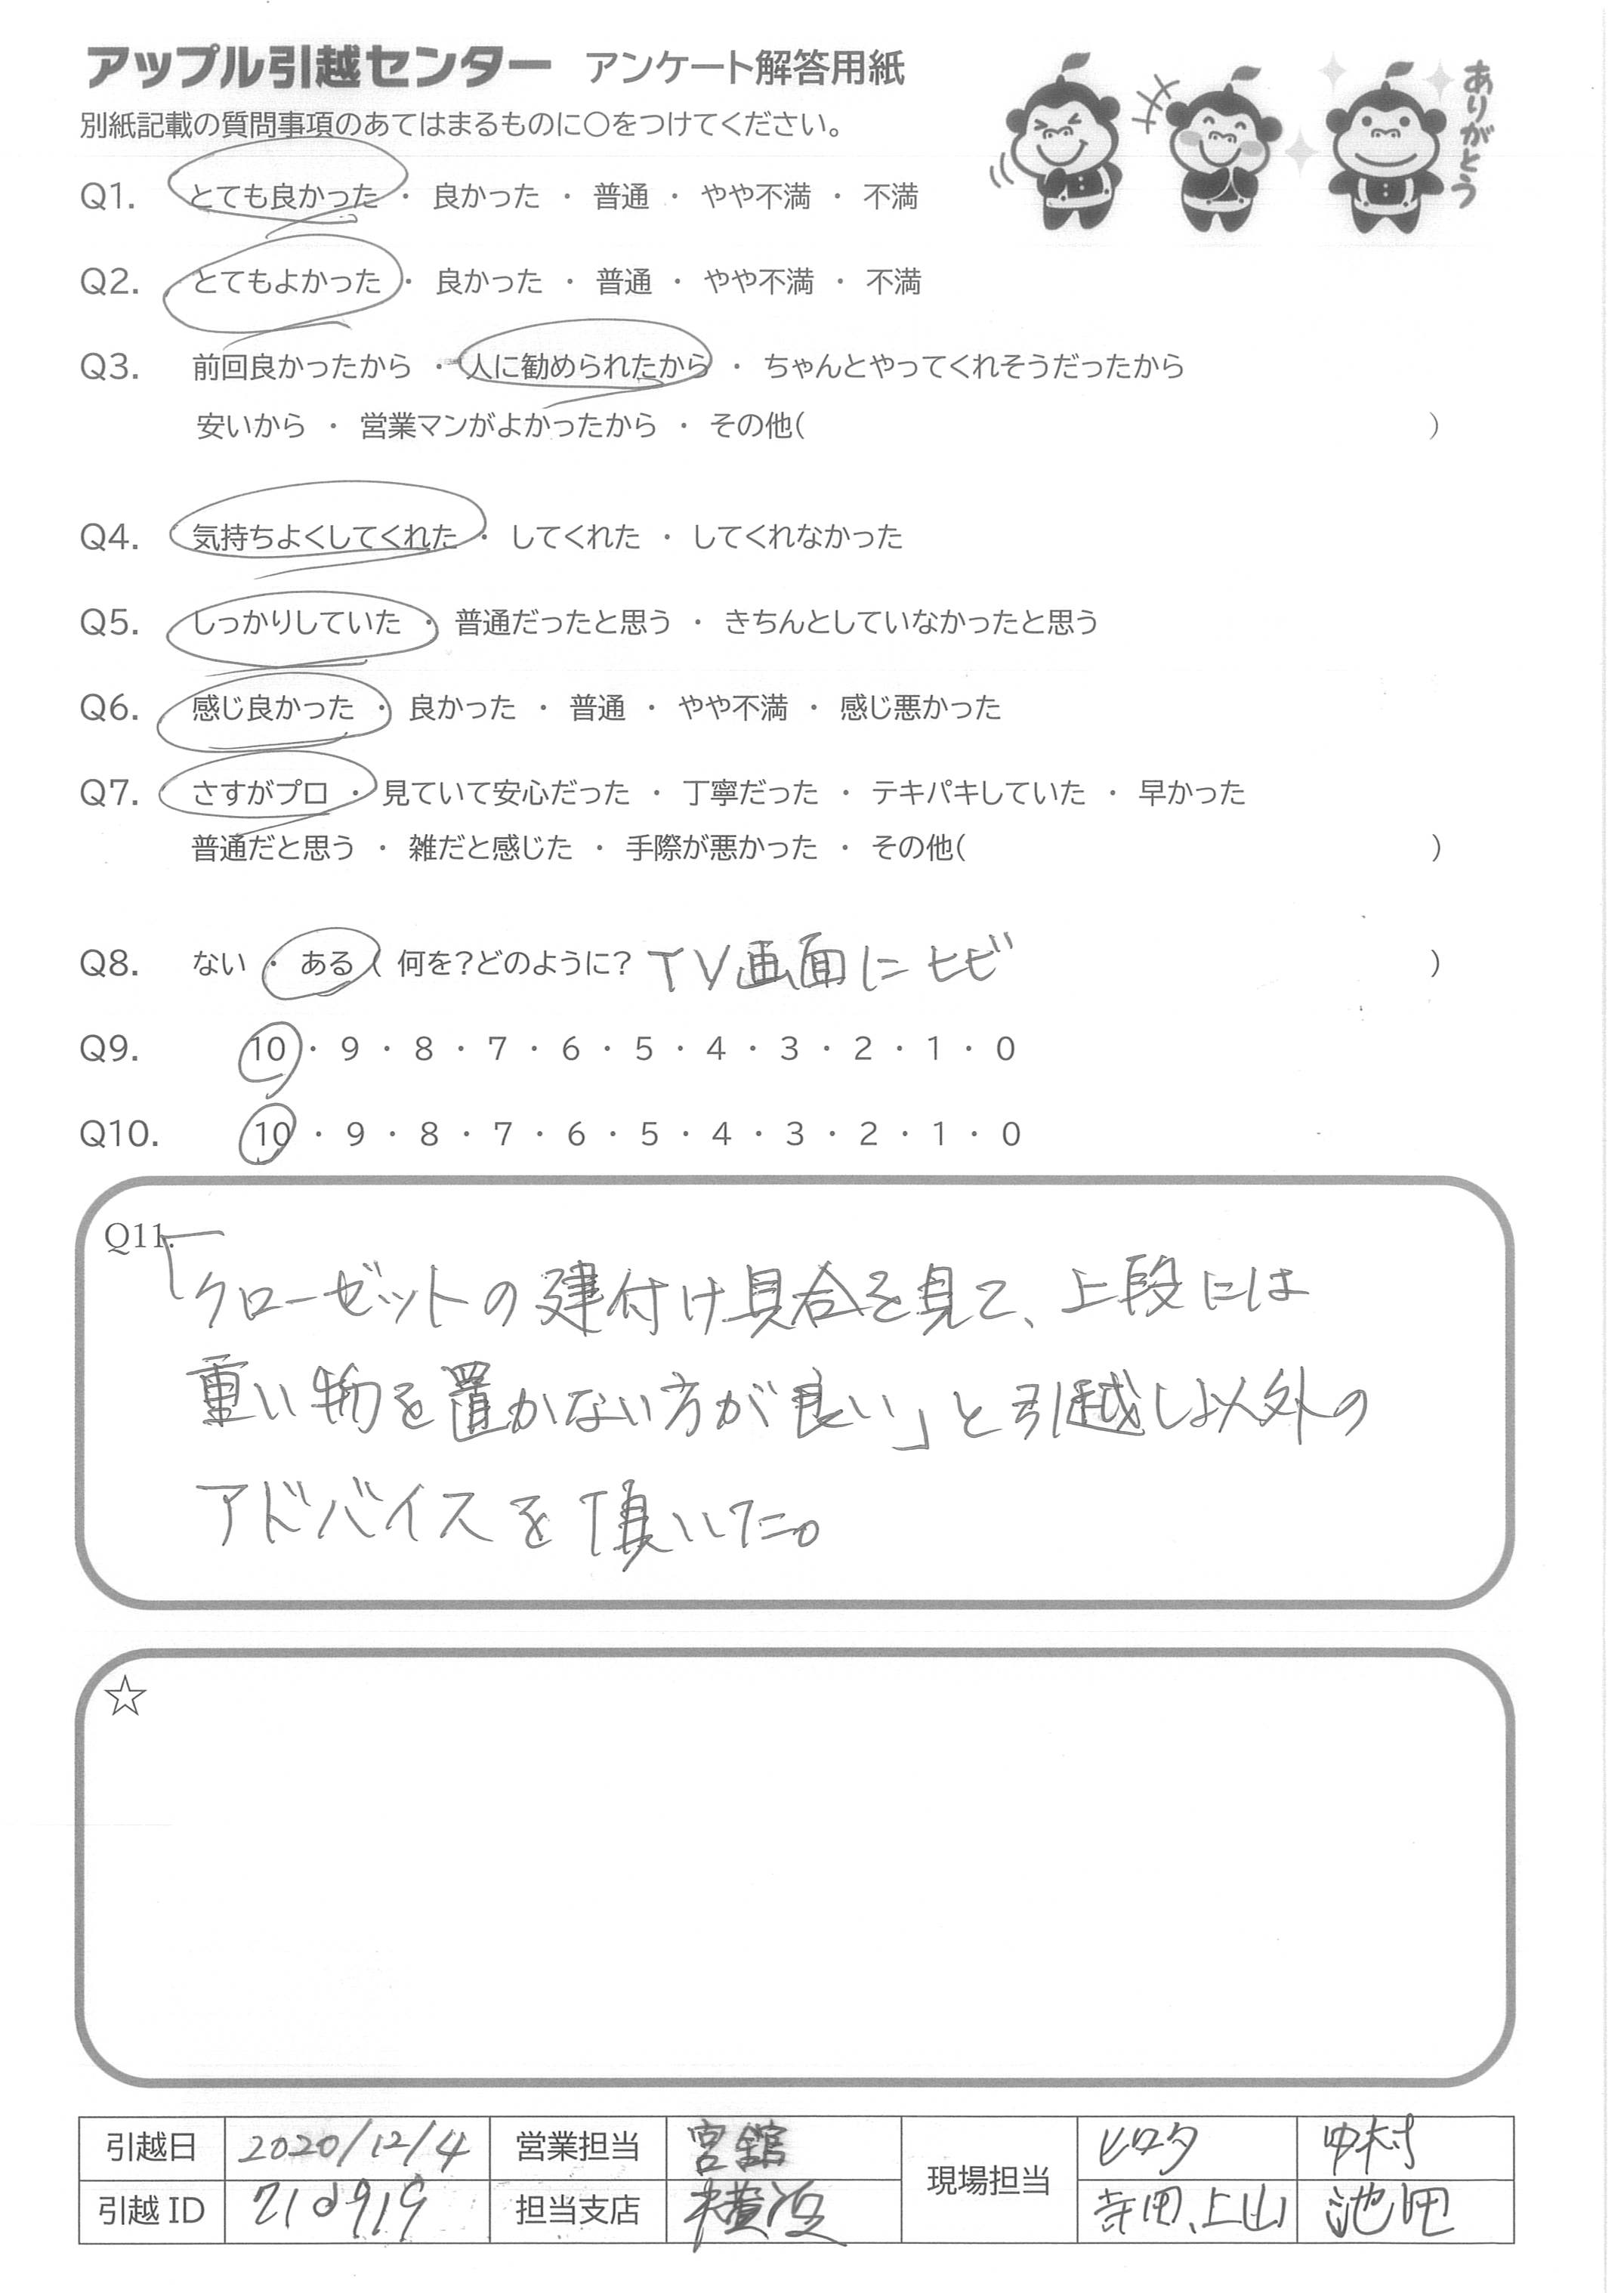 アップル引越センター アンケート解答用紙
ありがとう
別紙記載の質問事項のあてはまるものに〇をつけてください。
Q1. とても良かった ・ 良かった ・ 普通 ・ やや不満 ・ 不満
Q2. とてもよかった ・ 良かった ・ 普通 ・ やや不満 ・ 不満
Q3. 前回良かったから ・ 人に勧められたから ・ ちゃんとやってくれそうだったから
安いから ・ 営業マンがよかったから ・ その他( )
Q4. 気持ちよくしてくれた ・ してくれた ・ してくれなかった
Q5. しっかりしていた ・ 普通だったと思う ・ きちんとしていなかったと思う
Q6. 感じ良かった ・ 良かった ・ 普通 ・ やや不満 ・ 感じ悪かった
Q7. さすがプロ ・ 見ていて安心だった ・ 丁寧だった ・ テキパキしていた ・ 早かった
普通だと思う ・ 雑だと感じた ・ 手際が悪かった ・ その他( )
Q8. ない ・ ある ( 何を?どのように? TV画面にヒビ )
Q9. 10 ・ 9 ・ 8 ・ 7 ・ 6 ・ 5 ・ 4 ・ 3 ・ 2 ・ 1 ・ 0
Q10. 10 ・ 9 ・ 8 ・ 7 ・ 6 ・ 5 ・ 4 ・ 3 ・ 2 ・ 1 ・ 0
Q11.
「クローゼットの建付け具合を見て、上段には
重い物を置かない方が良い」と引越し以外の
アドバイスを頂いた。
☆
引越日 2020/12/4 営業担当 宮舘 現場担当 ヒロタ 中村
引越 ID 210919 担当支店 横浜 寺田、上山 池田